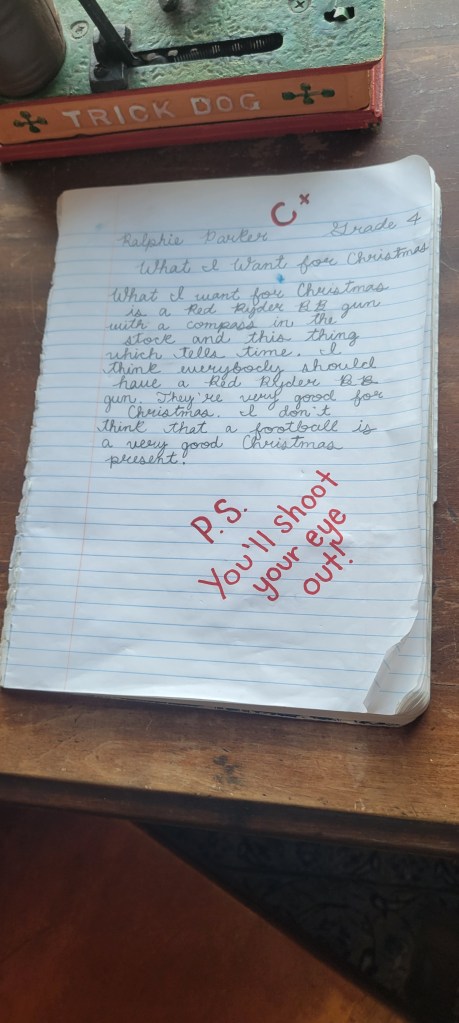 TRICK DOG
C+
Ralphie Parker Grade 4
What I Want for Christmas
What I want for Christmas
is a Red Ryder BB gun
with a compass in the
stock and this thing
which tells time. I
think everybody should
have a Red Ryder BB
gun. They're very good for
Christmas. I don't
think that a football is
a very good Christmas
present.
P.S.
You'll shoot
your eye
out!!